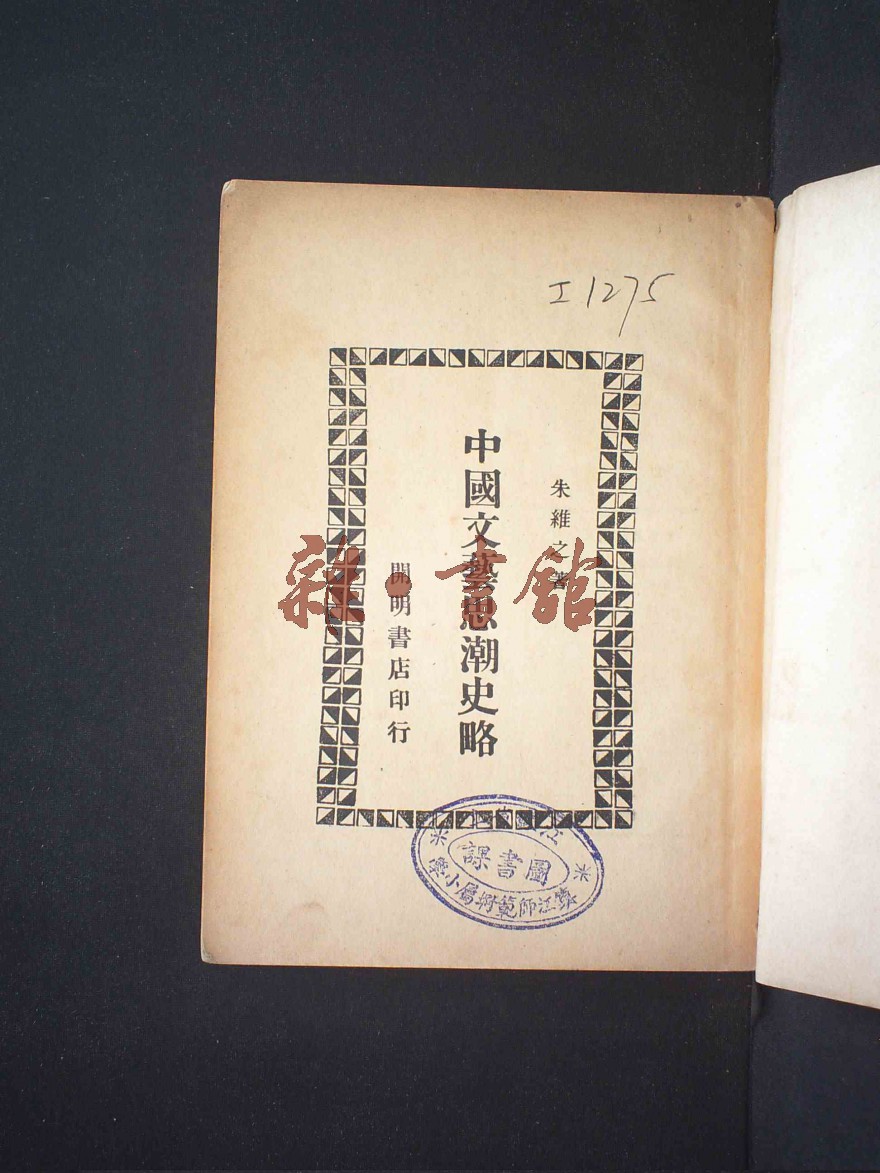 I1275
朱維之著
中國文藝思潮史略
開明書店印行
雜·書館
圖書課
江師範附屬小學